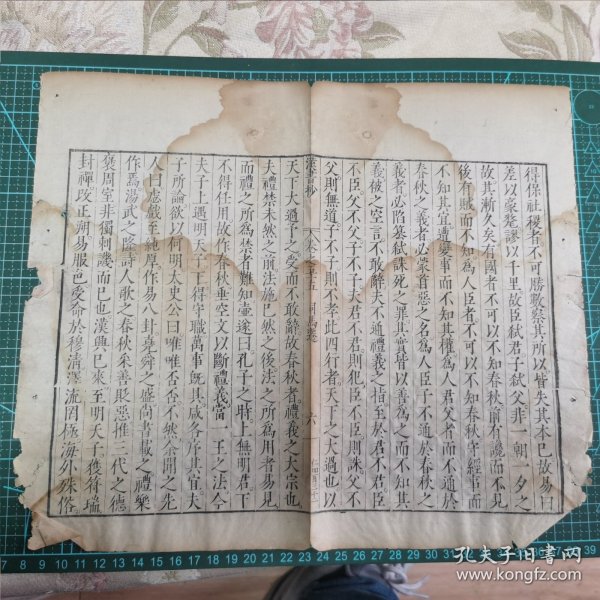 得保社稷者不可勝數察其所以皆失其本巳故易曰
差以毫氂謬以千里故臣弑君子弑父非一朝一夕之
故其漸久矣有國者不可以不知春秋前有讒而不見
後有賊而不知為人臣者不可以不知春秋守經事而
不知其宜遭變事而不知其權為人君父者而不通於
春秋之義者必蒙首惡之名為人臣子不通於春秋之
義者必陷篡弑誅死之罪其實皆以善為之而不知其
義被之空言不敢辭夫不通禮義之指至於君不君臣
不臣父不父子不子夫君不君則犯臣不臣則誅父不
父則無道子不子則不孝此四行者天下之大過也以
漢書抄 卷 十五 司馬遷 六
天下大過予之受而不敢辭故春秋者禮義之大宗也
夫禮禁未然之前法施巳然之後法之所為用者易見
而禮之所為禁者難知壷遂曰孔子之時上無明君下
不得任用故作春秋垂空文以斷禮義當 王之法今
夫子上遇明天子下得守職萬事既具咸各序其宜夫
子所論欲以何明太史公曰唯唯否否不然余聞之先
人曰虙戲至純厚作易八卦堯舜之盛尚書載之禮樂
作焉湯武之隆詩人歌之春秋采善貶惡推三代之德
褒周室非獨刺譏而巳也漢興巳來至明天子獲符瑞
封禪改正朔易服色受命於穆清澤流罔極海外殊俗
孔夫子旧书网
www.kongfz.com